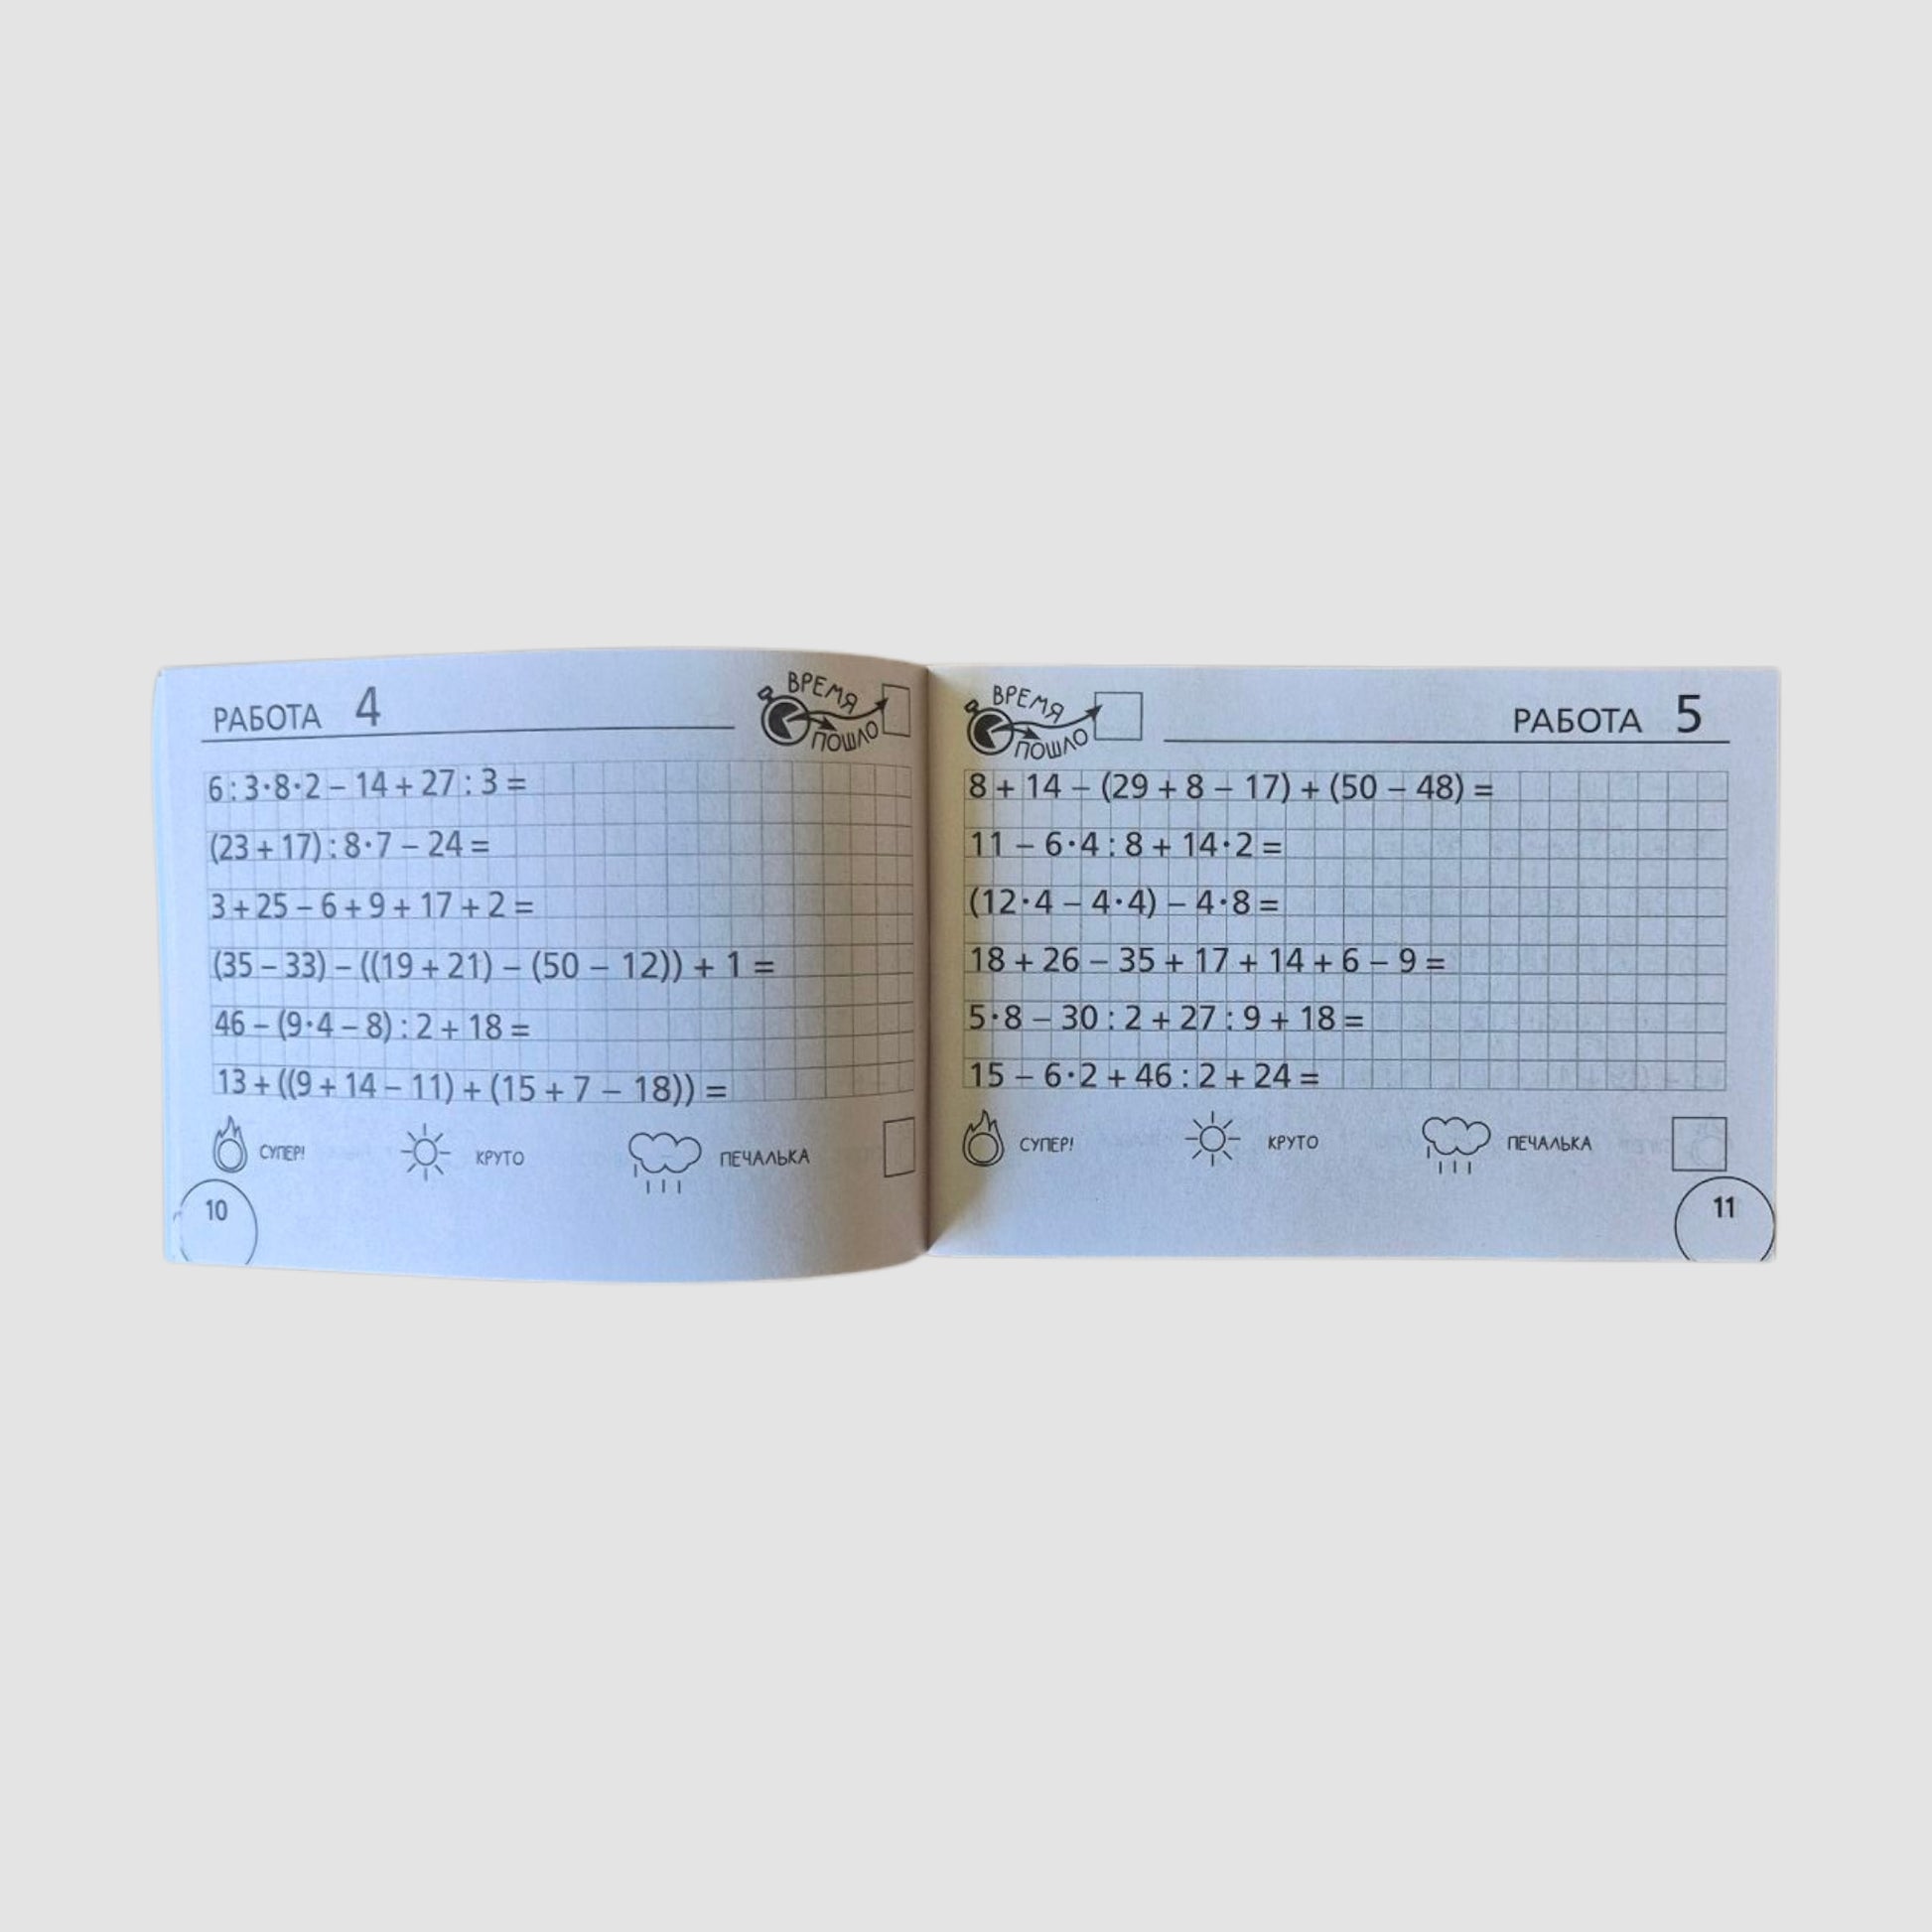 РАБОТА 4
ВРЕМЯ
ПОШЛО
6 : 3·8·2 – 14 + 27 : 3 =
(23 + 17) : 8·7 – 24 =
3 + 25 – 6 + 9 + 17 + 2 =
(35 – 33) – ((19 + 21) – (50 – 12)) + 1 =
46 – (9·4 – 8) : 2 + 18 =
13 + ((9 + 14 – 11) + (15 + 7 – 18)) =
СУПЕР! КРУТО ПЕЧАЛЬКА
10
ВРЕМЯ
ПОШЛО
РАБОТА 5
8 + 14 – (29 + 8 – 17) + (50 – 48) =
11 – 6·4 : 8 + 14·2 =
(12·4 – 4·4) – 4·8 =
18 + 26 – 35 + 17 + 14 + 6 – 9 =
5·8 – 30 : 2 + 27 : 9 + 18 =
15 – 6·2 + 46 : 2 + 24 =
СУПЕР! КРУТО ПЕЧАЛЬКА
11